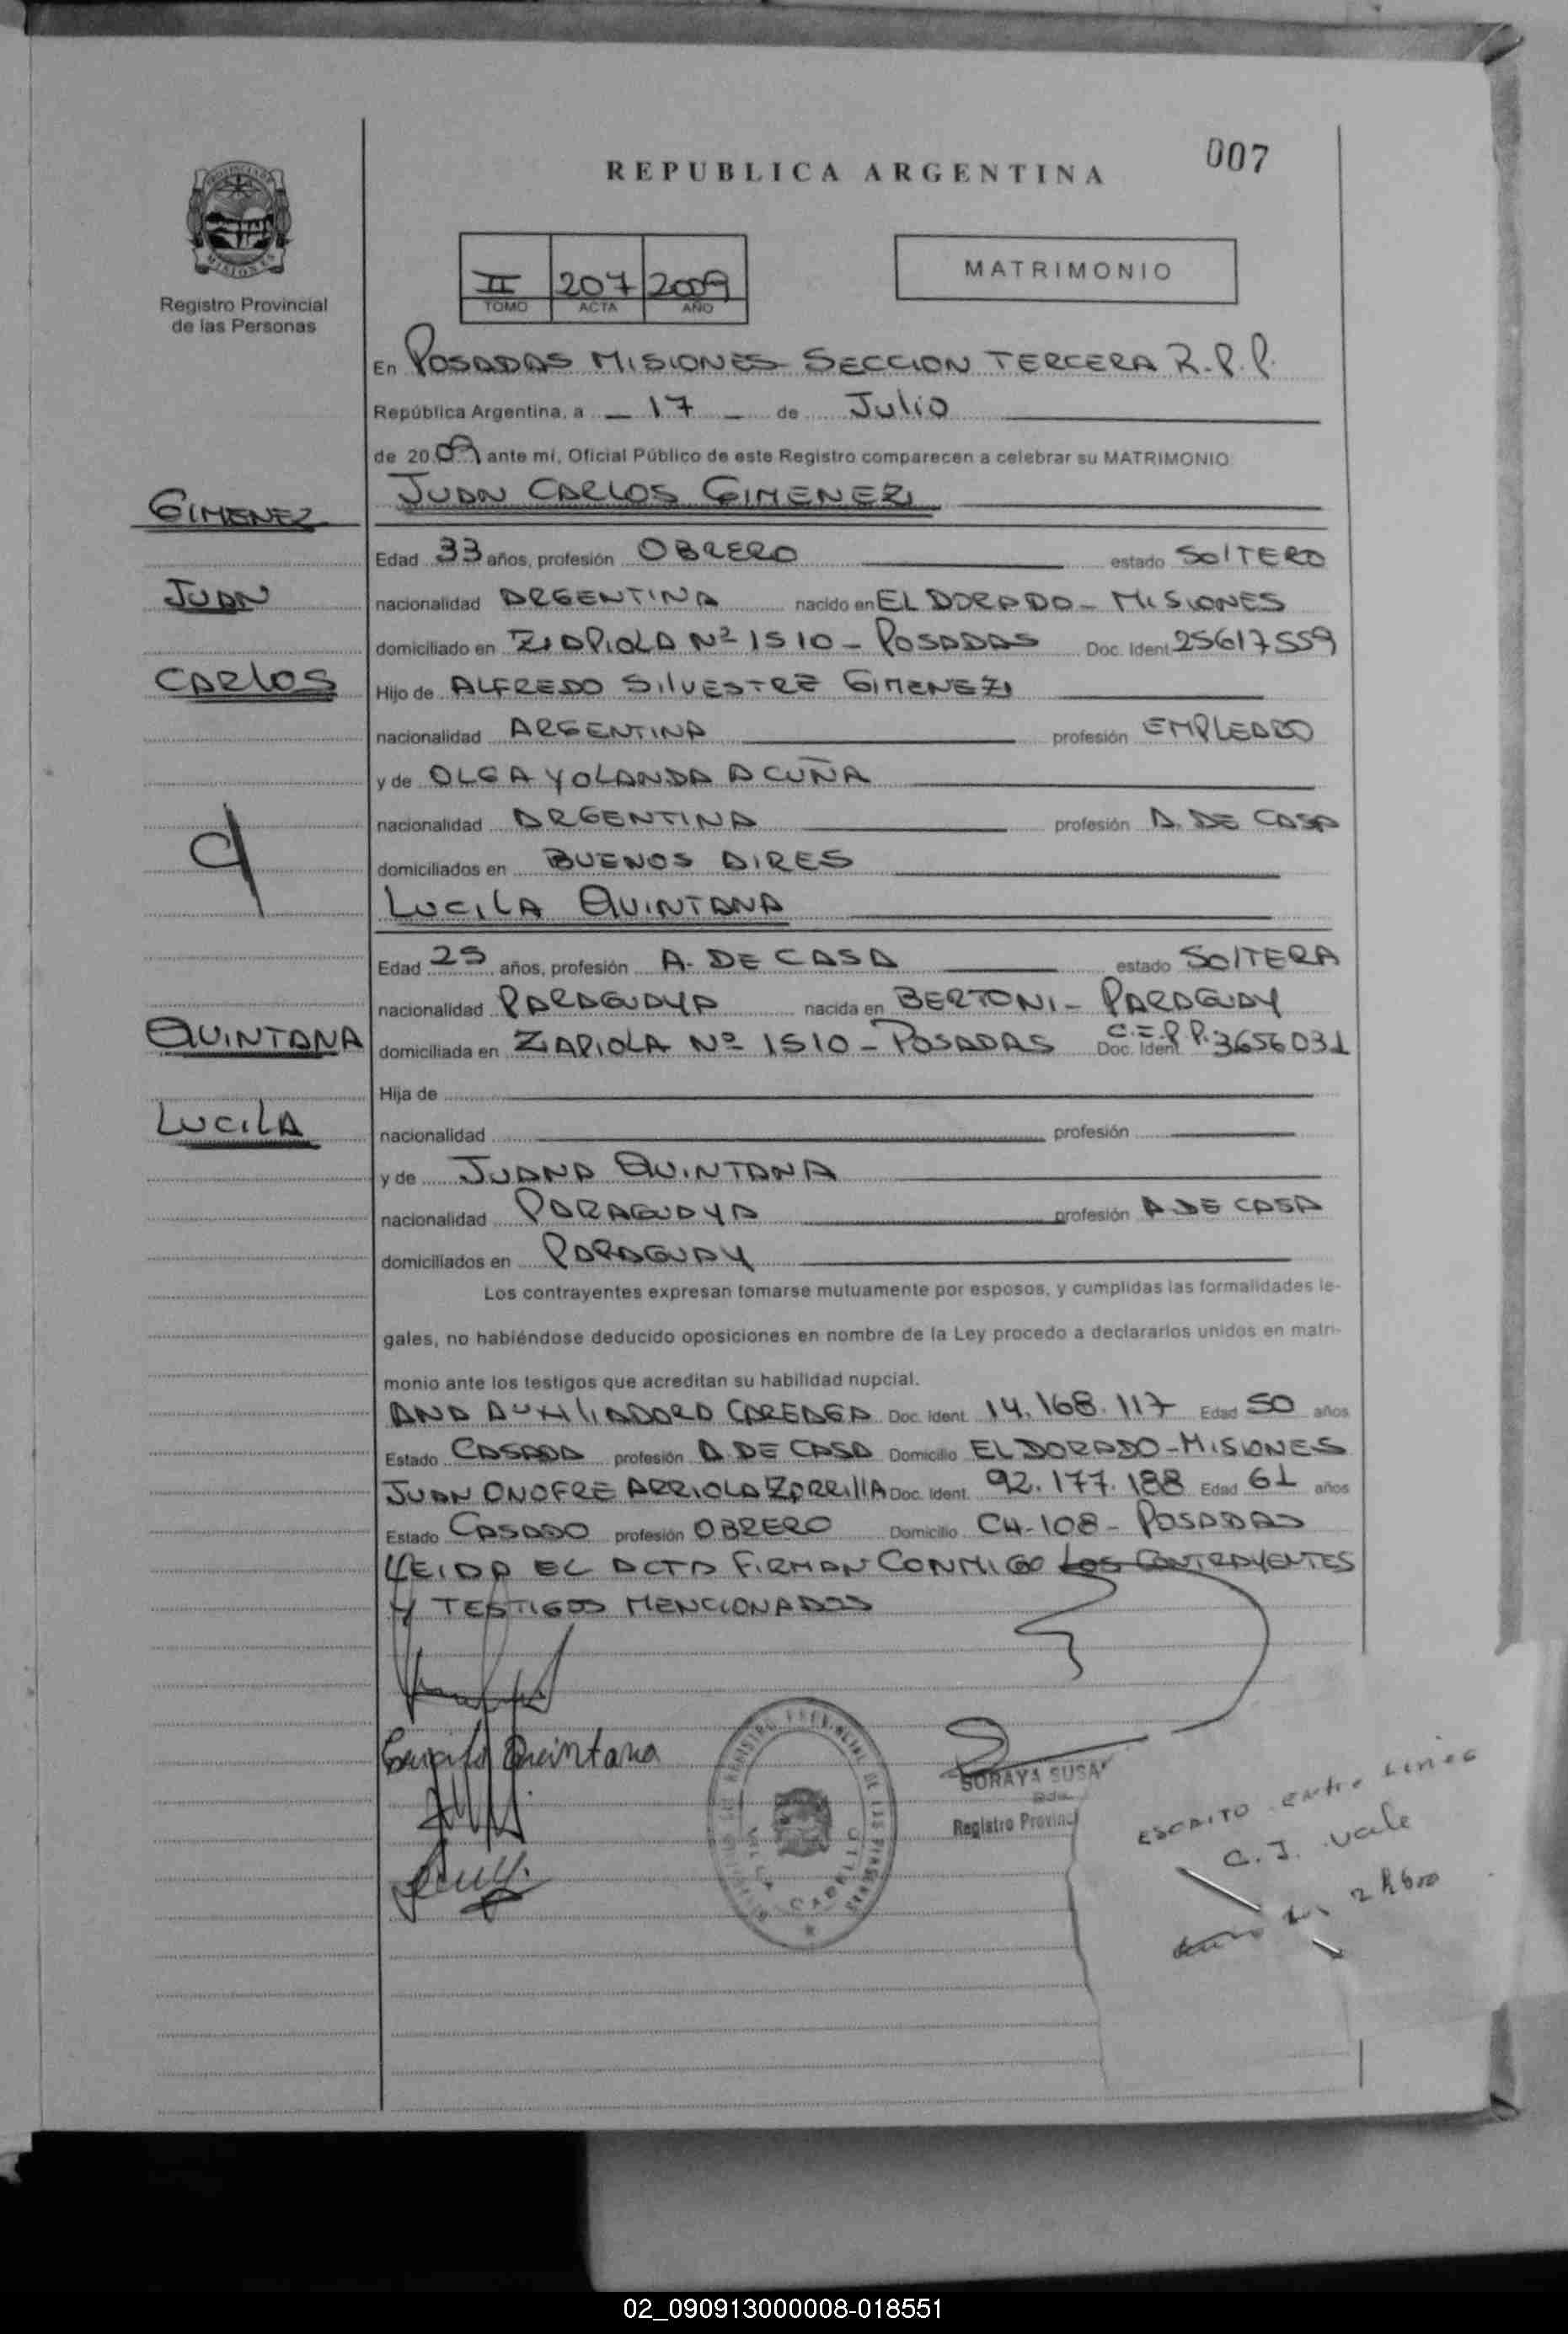 007
REPUBLICA ARGENTINA
MATRIMONIO
II 207 2009
TOMO ACTA AÑO
PROVINCIA DE MISIONES
Registro Provincial
de las Personas
En POSADAS MISIONES SECCION TERCERA R.P.P.
República Argentina, a - 17 - de Julio
de 2009 ante mí, Oficial Público de este Registro comparecen a celebrar su MATRIMONIO
GIMENEZ
JUAN CARLOS GIMENEZ
Edad 33 años, profesión OBRERO estado SOLTERO
JUAN
nacionalidad ARGENTINA nacido en ELDORADO - MISIONES
domiciliado en ZAPIOLA Nº 1510 - POSADAS Doc. Ident 25617559
CARLOS
Hijo de ALFREDO SILVESTRE GIMENEZ
nacionalidad ARGENTINA profesión EMPLEADO
y de OLGA YOLANDA ACUÑA
nacionalidad ARGENTINA profesión A. DE CASA
domiciliados en BUENOS AIRES
LUCILA QUINTANA
Edad 25 años, profesión A. DE CASA estado SOLTERA
nacionalidad PARAGUAYA nacida en BERTONI - PARAGUAY
QUINTANA
domiciliada en ZAPIOLA Nº 1510 - POSADAS Doc. Ident P. 3656031
Hija de
LUCILA
nacionalidad profesión
y de JUANA QUINTANA
nacionalidad PARAGUAYA profesión A DE CASA
domiciliados en PARAGUAY
Los contrayentes expresan tomarse mutuamente por esposos, y cumplidas las formalidades le-
gales, no habiéndose deducido oposiciones en nombre de la Ley procedo a declararlos unidos en matri-
monio ante los testigos que acreditan su habilidad nupcial.
ANA AUXILIADORA CAREAGA Doc. Ident. 14.168.117 Edad 50 años
Estado CASADA profesión A. DE CASA Domicilio ELDORADO - MISIONES
JUAN ONOFRE ARRIOLA ZARRILLA Doc. Ident. 92.177.188 Edad 61 años
Estado CASADO profesión OBRERO Domicilio CH-108 - POSADAS
LEIDA EL ACTA FIRMAN CONMIGO LOS CONTRAYENTES
Y TESTIGOS MENCIONADOS
Quintana
REGISTRO PROVINCIAL DE LAS PERSONAS
SORAYA SUSA
Registro Provinci
ESCRITO entre Linea
C.I. vale
02_090913000008-018551